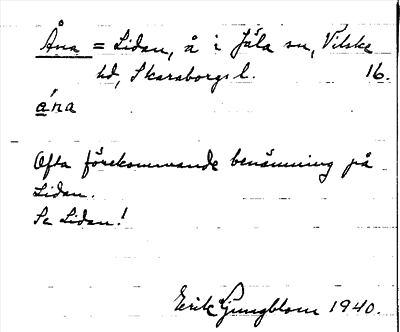 Åna = Lidan, å i Jäla sn, Vilske
hd, Skaraborgs l. 16.
ána
Ofta förekommande benämning på
Lidan.
Se Lidan!
Erik Ljungblom 1940.